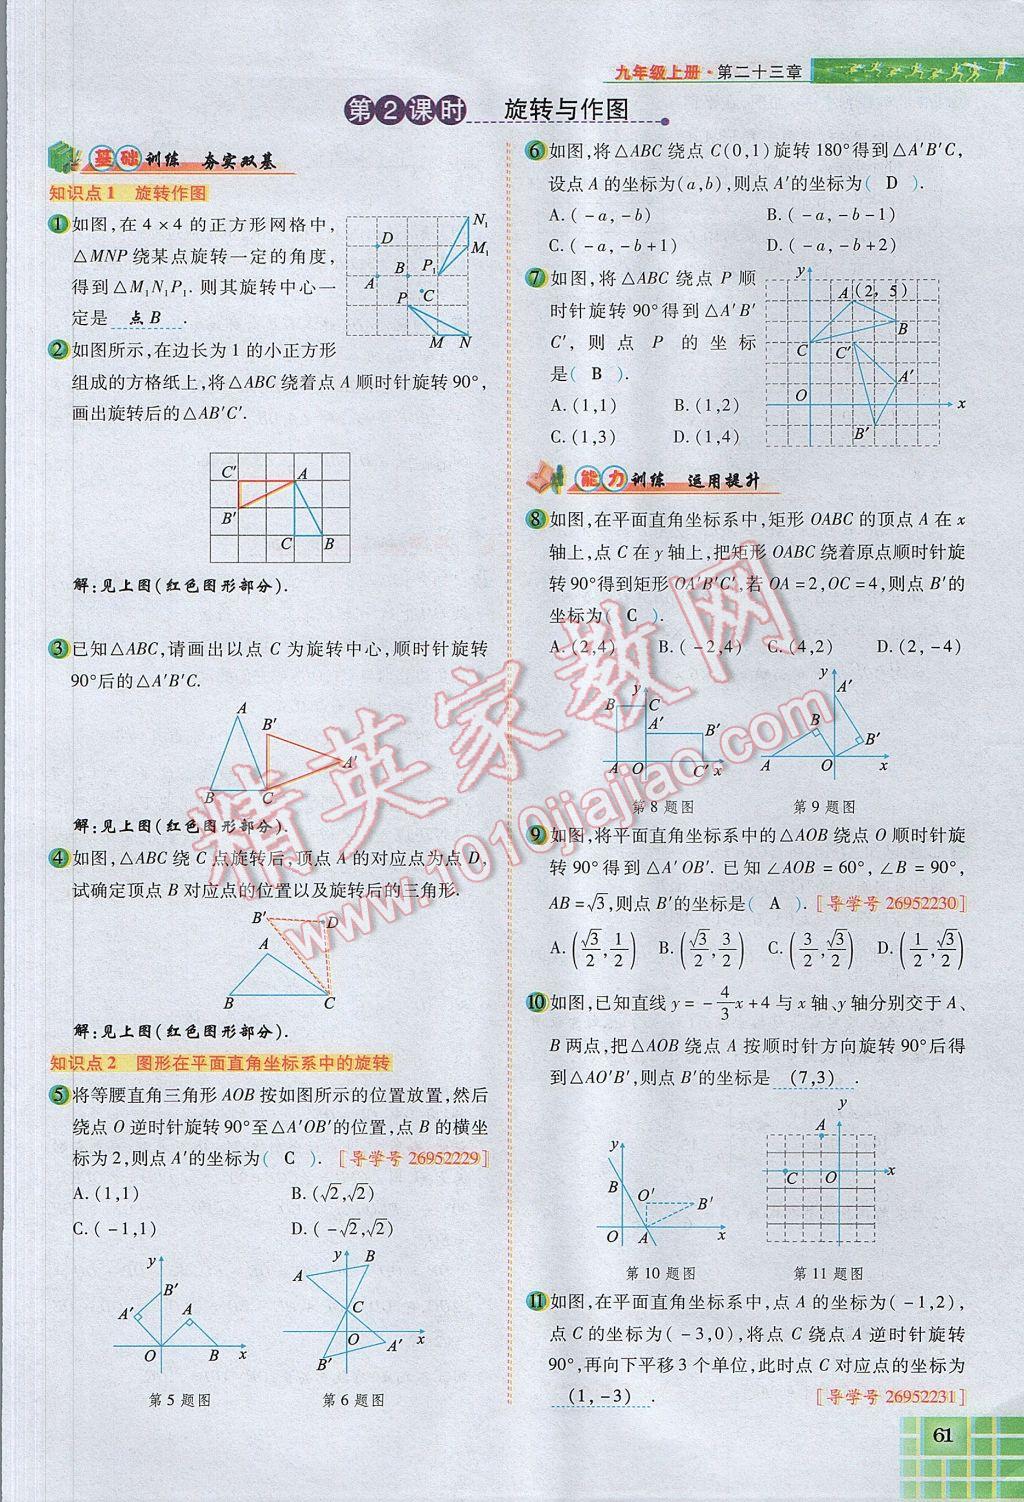 九年级上册·第二十三章
第2课时 旋转与作图
基础训练 夯实双基
知识点1 旋转作图
1 如图,在4×4的正方形网格中,
△MNP绕某点旋转一定的角度,
得到△M₁N₁P₁.则其旋转中心一
定是 点B .
N₁
D
M₁
A
B
P₁
C
P
M
N
2 如图所示,在边长为1的小正方形
组成的方格纸上,将△ABC绕着点A顺时针旋转90°,
画出旋转后的△AB′C′.
C′
A
B′
C
B
解:见上图(红色图形部分).
3 已知△ABC,请画出以点C为旋转中心,顺时针旋转
90°后的△A′B′C.
A
B′
A′
B
C
解:见上图(红色图形部分).
4 如图,△ABC绕C点旋转后,顶点A的对应点为点D,
试确定顶点B对应点的位置以及旋转后的三角形.
B′
D
A
B
C
解:见上图(红色图形部分).
知识点2 图形在平面直角坐标系中的旋转
5 将等腰直角三角形AOB按如图所示的位置放置,然后
绕点O逆时针旋转90°至△A′OB′的位置,点B的横坐
标为2,则点A′的坐标为( C ). [导学号 26952229]
A.(1,1) B.(√2,√2)
C.(-1,1) D.(-√2,√2)
y
B′
A′
A
O
B
x
第5题图
y
B
A
C
O
A′
x
B′
第6题图
6 如图,将△ABC绕点C(0,1)旋转180°得到△A′B′C,
设点A的坐标为(a,b),则点A′的坐标为( D ).
A.(-a,-b) B.(-a,-b-1)
C.(-a,-b+1) D.(-a,-b+2)
7 如图,将△ABC绕点P顺
时针旋转90°得到△A′B′
C′,则点P的坐标
是( B ).
A.(1,1) B.(1,2)
C.(1,3) D.(1,4)
y
A(2,5)
B
C
C′
A′
O
x
B′
能力训练 运用提升
8 如图,在平面直角坐标系中,矩形OABC的顶点A在x
轴上,点C在y轴上,把矩形OABC绕着原点顺时针旋
转90°得到矩形OA′B′C′,若OA=2,OC=4,则点B′的
坐标为( C ).
A.(2,4) B.(-2,4) C.(4,2) D.(2,-4)
y
B
C
A′
B′
A
O
C′
x
第8题图
y
A′
B
B′
A
O
x
第9题图
9 如图,将平面直角坐标系中的△AOB绕点O顺时针旋
转90°得到△A′OB′.已知∠AOB=60°,∠B=90°,
AB=√3,则点B′的坐标是( A ). [导学号 26952230]
A.(√3/2,1/2) B.(√3/2,3/2) C.(3/2,√3/2) D.(1/2,√3/2)
10 如图,已知直线y=-4/3x+4与x轴、y轴分别交于A、
B两点,把△AOB绕点A按顺时针方向旋转90°后得
到△AO′B′,则点B′的坐标是 (7,3) .
y
B
O′
B′
O
A
x
第10题图
y
A
C
O
x
第11题图
11 如图,在平面直角坐标系中,点A的坐标为(-1,2),
点C的坐标为(-3,0),将点C绕点A逆时针旋转
90°,再向下平移3个单位,此时点C对应点的坐标为
(1,-3) . [导学号 26952231]
61
精英家教网
www.1010jiajiao.com